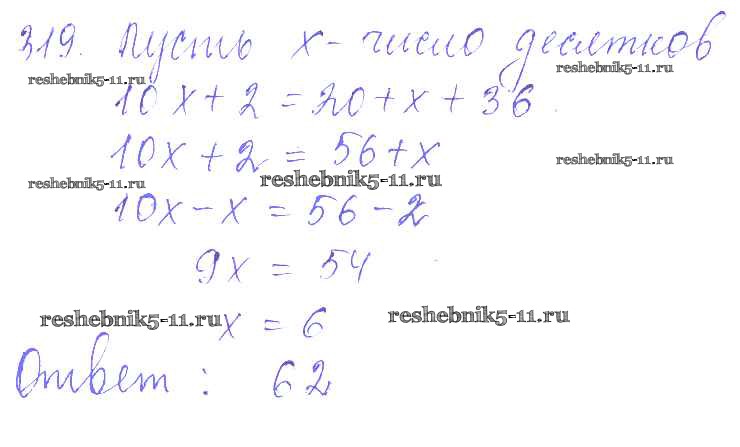 319. Пусть x - число десятков
reshebnik5-11.ru
reshebnik5-11.ru
10x + 2 = 20 + x + 36
10x + 2 = 56 + x
reshebnik5-11.ru
reshebnik5-11.ru
reshebnik5-11.ru
10x - x = 56 - 2
9x = 54
reshebnik5-11.ru
reshebnik5-11.ru
x = 6
Ответ: 62